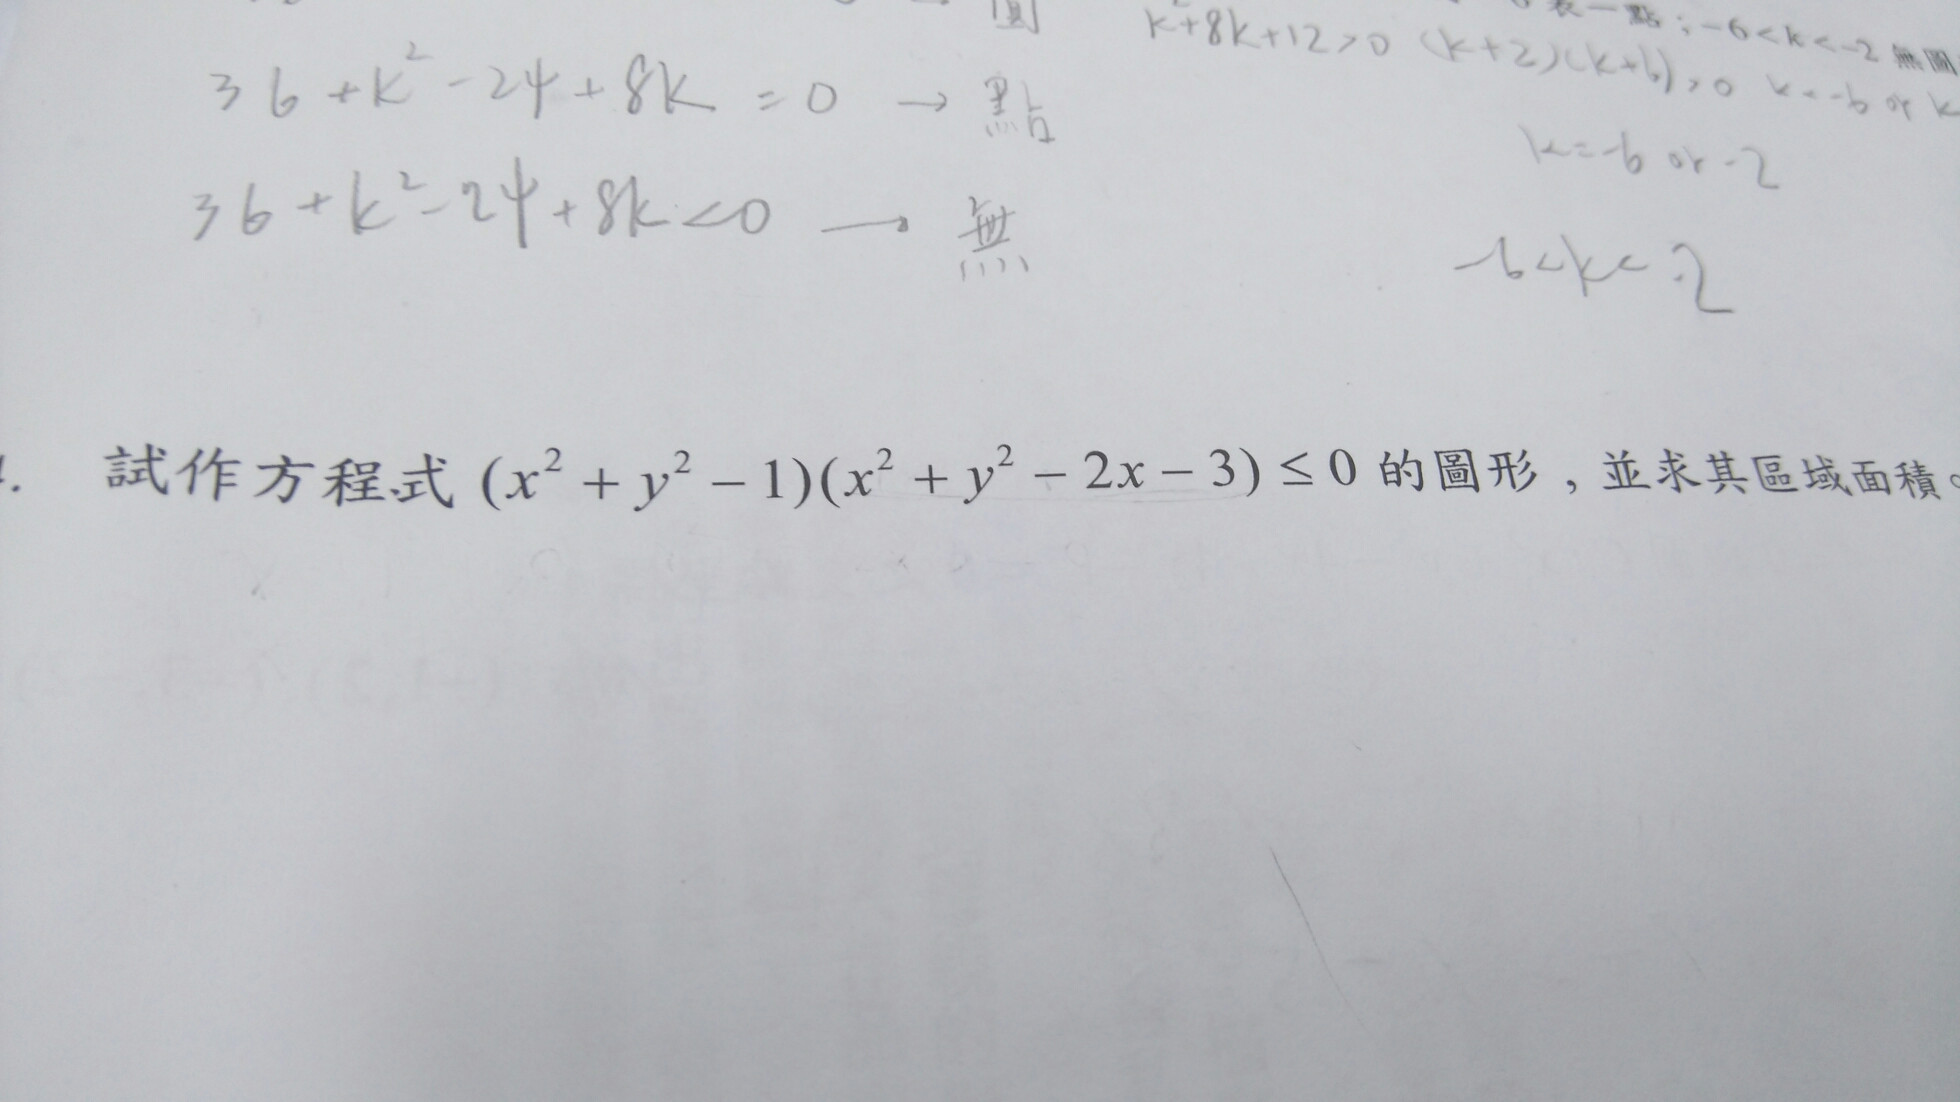 圓 k²+8k+12>0 (k+2)(k+6)>0 k<-6 or k
表一點；-6<k<-2 無圖
36+k²-24+8k=0 → 點
k=-6 or -2
36+k²-24+8k<0 → 無
-6<k<-2
. 試作方程式 (x² + y² − 1)(x² + y² − 2x − 3) ≤ 0 的圖形，並求其區域面積。